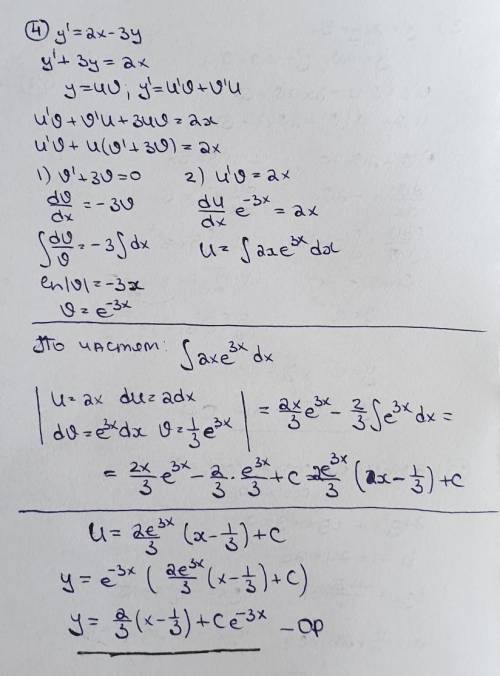 ④ y' = 2x - 3y
y' + 3y = 2x
y = uϑ; y' = u'ϑ + ϑ'u
u'ϑ + ϑ'u + 3uϑ = 2x
u'ϑ + u(ϑ' + 3ϑ) = 2x
1) ϑ' + 3ϑ = 0 2) u'ϑ = 2x
dϑ/dx = -3ϑ du/dx e^{-3x} = 2x
∫ dϑ/ϑ = -3∫dx u = ∫2xe^{3x}dx
ln|ϑ| = -3x
ϑ = e^{-3x}
По частям: ∫2xe^{3x}dx
| u = 2x du = 2dx | = 2x/3 e^{3x} - 2/3 ∫e^{3x}dx =
| dϑ = e^{3x}dx ϑ = 1/3 e^{3x} |
= 2x/3 e^{3x} - 2/3 · e^{3x}/3 + C = 2e^{3x}/3 (x - 1/3) + C
u = 2e^{3x}/3 (x - 1/3) + C
y = e^{-3x} (2e^{3x}/3 (x - 1/3) + C)
y = 2/3 (x - 1/3) + Ce^{-3x} - ОР